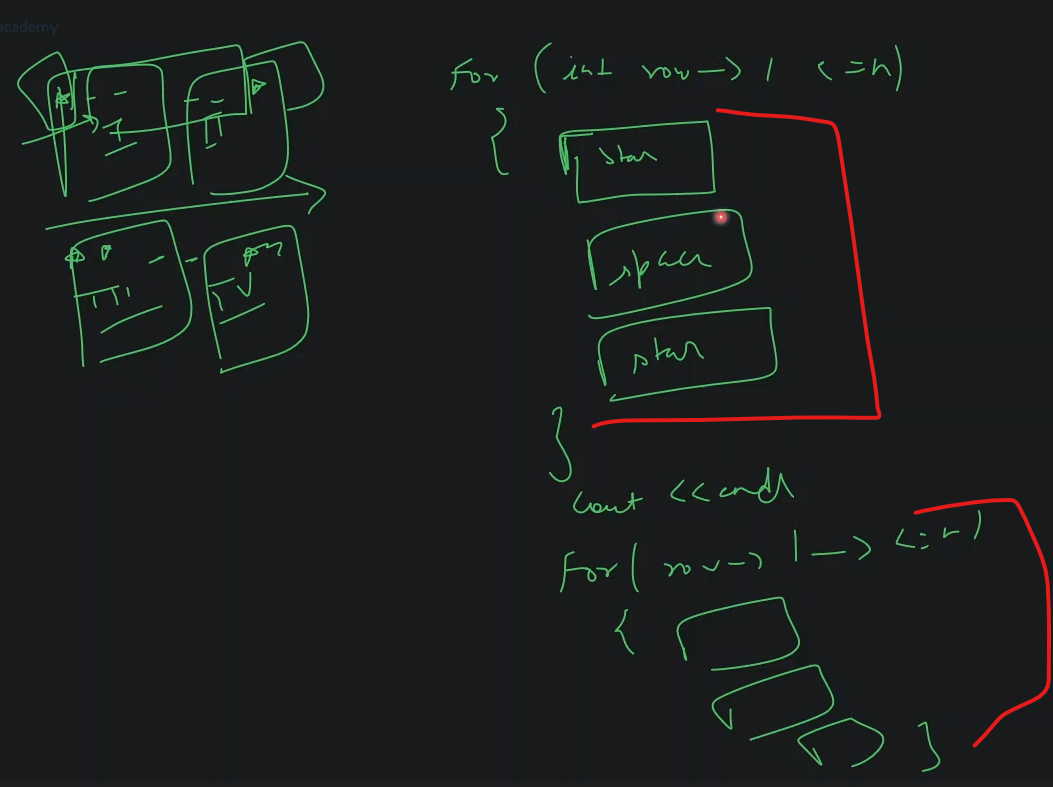 academy
* - -
- - *
I
II
* *
- -
III
IV
for (int row -> 1 <=n)
{
star
spaces
star
}
cout <<endl
For( row -> 1 -> <=n)
{
}